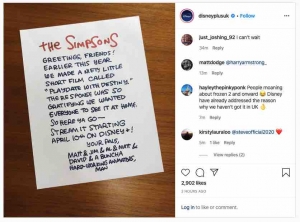 THE SIMPSONS
GREETINGS, FRIENDS!
EARLIER THIS YEAR
WE MADE A NIFTY LITTLE
SHORT FILM CALLED
"PLAYDATE WITH DESTINY."
THE RESPONSE WAS SO
GRATIFYING WE WANTED
EVERYONE TO SEE IT AT HOME.
SO HERE YA GO—
STREAM IT STARTING
APRIL 10TH ON DISNEY+!
YOUR PALS,
MATT & JIM & AL & MATT &
DAVID & A BUNCHA
HARD-WORKING ANIMATORS,
MAN
disneyplusuk • Follow
just_joshing_92 I can't wait
34m Reply
mattdodge @harryarmstrong_
13m Reply
hayleythepinkyponk People moaning about frozen 2 and onward Disney have already addressed the reason why we haven't got it in UK
7m Reply
kirstylaurxios @steveofficial2020
9m 1 like Reply
View replies (2)
2,902 likes
2 HOURS AGO
Log in to like or comment.